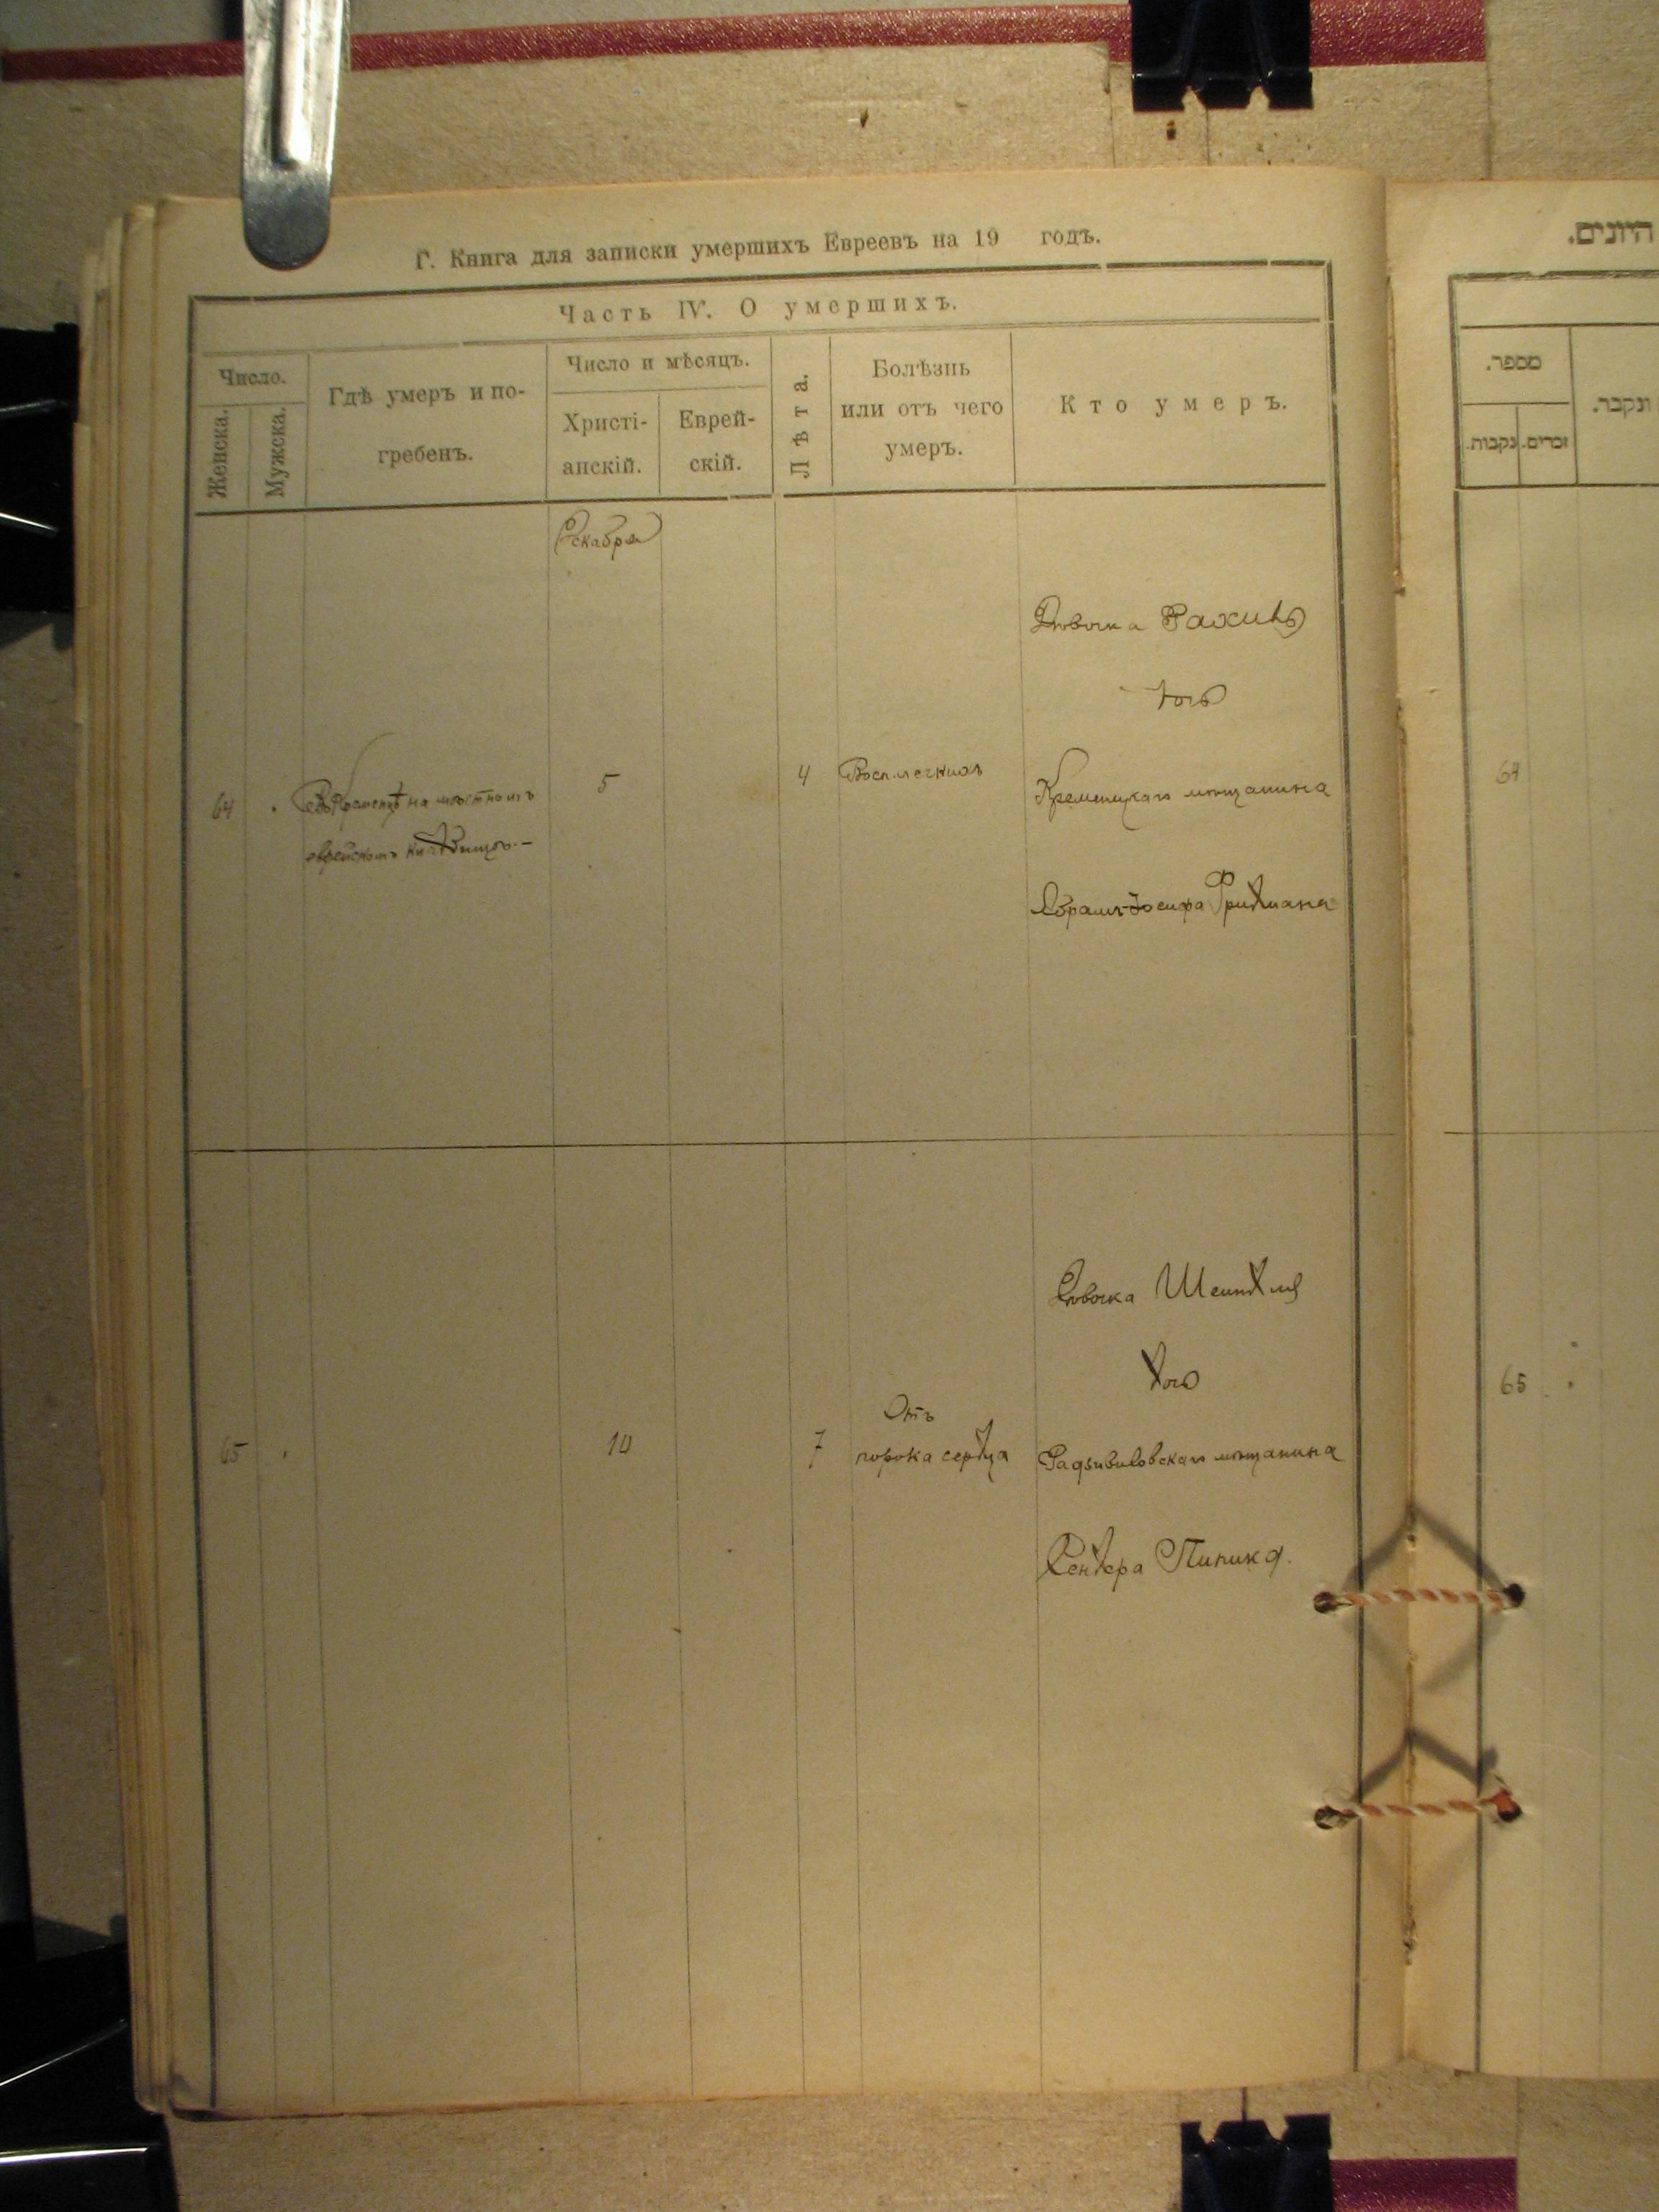 Г. Книга для записки умершихъ Евреевъ на 19 годъ.
Часть IV. О умершихъ.
Число.
Женска.
Мужска.
Гдѣ умеръ и по-
гребенъ.
Число и мѣсяцъ.
Христі-
анскій.
Еврей-
скій.
Лѣта.
Болѣзнь
или отъ чего
умеръ.
Кто умеръ.
Декабря
Дѣвочка Рахиль
дочь
64
на мѣстномъ
5
4
Восп. легкихъ
Кременецкаго мѣщанина
еврейскомъ кладбищѣ.-
Абрамъ-Іосифа Фридмана
Дѣвочка Шейндля
дочь
65
10
7
Отъ
порока сердца
Радзивиловскаго мѣщанина
Сендера Пипика.
היונים.
מספר.
נקבות.
זכרים.
ונקבר.
64
65